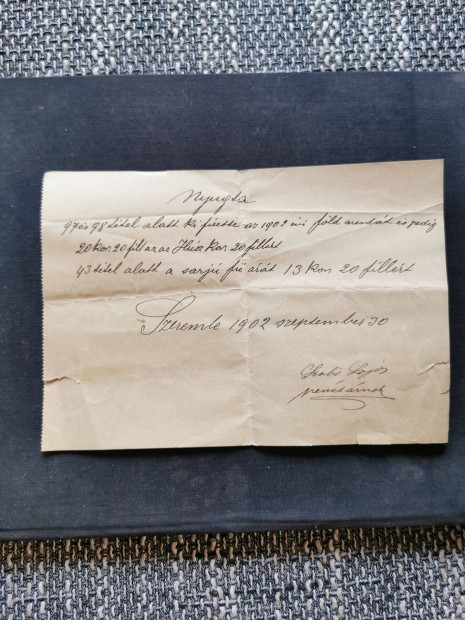 Nyugta
97 és 98 tétel alatt ki fizette az 1902 évi föld arendát és pedig
20 kor. 20 fill az az Húsz Kor. 20 fillért
43 tétel alatt a sarjú fű árát 13 kor 20 fillért
Szeremle 1902 szeptember 30
Szabó Lajos